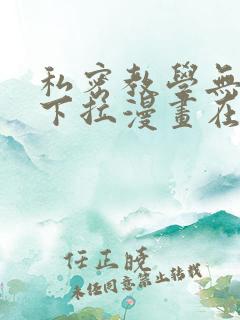 私密教學無
下拉漫畫在
任正曉
未经同意禁止转载